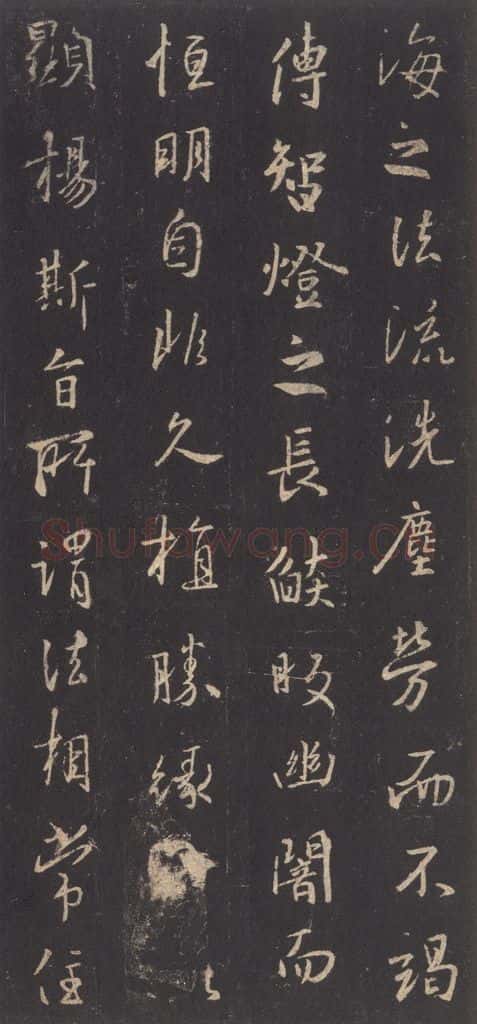 海之法流洗塵勞而不竭
傳智燈之長燄皎幽闇而
恒明自非久植勝緣
顯揚斯旨所謂法相常住
Shufawang.cn